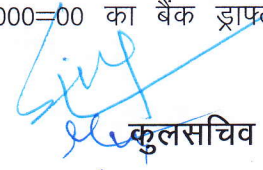 000=00 का बैंक ड्राफ्ट
कुलसचिव